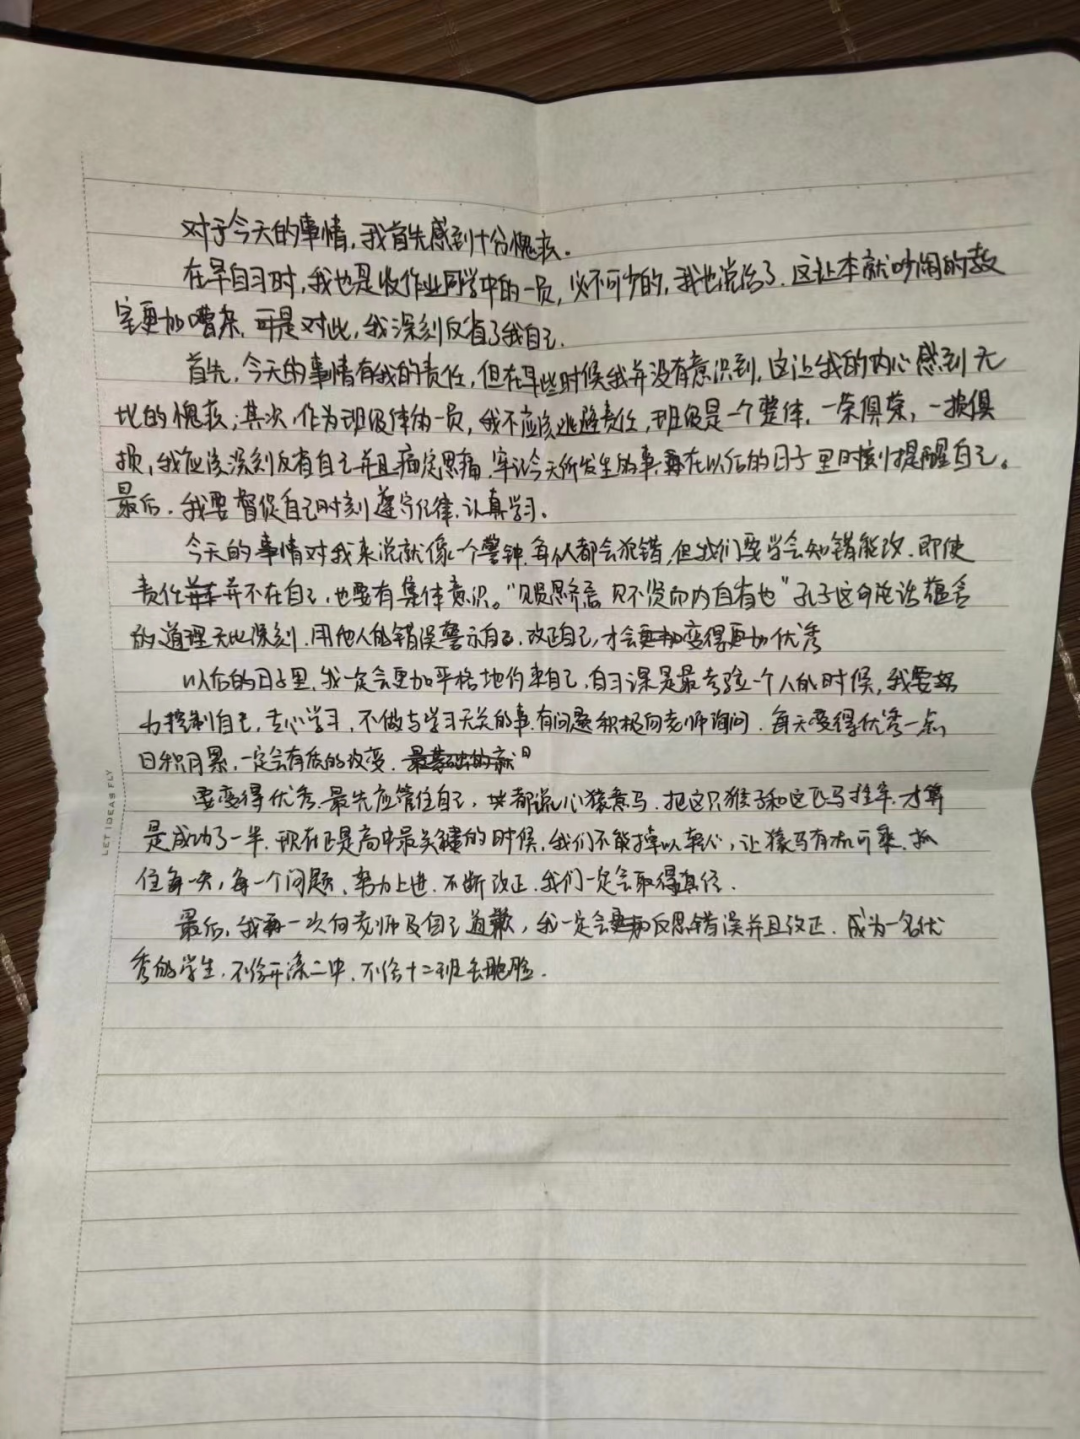 对于今天的事情,我首先感到十分愧疚.
在早自习时,我也是收作业同学中的一员,必不可少的,我也说话了.这让本就吵闹的教
室更加嘈杂,可是对此,我深刻反省了我自己.
首先,今天的事情有我的责任,但在早些时候我并没有意识到,这让我的内心感到无
比的愧疚;其次,作为班级体的一员,我不应该逃避责任,班级是一个整体,一荣俱荣,一损俱
损,我应该深刻反省自己并且痛定思痛.牢记今天所发生的事,在以后的日子里时刻提醒自己。
最后,我要督促自己时刻遵守纪律,认真学习、
今天的事情对我来说就像一个警钟,每个人都会犯错,但我们要学会知错能改、即使
责任并不在自己,也要有集体意识。"见贤思齐焉 见不贤而内自省也"孔子这句论语蕴含
的道理无比深刻.用他人的错误警示自己.改正自己,才会变得更加优秀
以后的日子里,我一定会更加严格地约束自己,自习课是最考验一个人的时候,我要努
力控制自己,专心学习,不做与学习无关的事.有问题积极向老师询问.每天变得优秀一点
日积月累,一定会有质的改变.
要变得优秀.最先应管住自己,都说心猿意马.把这只猴子和这匹马拴牢,才算
是成功了一半.现在正是高中最关键的时候,我们不能掉以轻心,让猿马有机可乘.抓
住每一天,每一个问题、努力上进.不断改正.我们一定会取得
最后,我再一次向老师及自己道歉,我一定会反思错误并且改正.成为一名优
秀的学生.不给开滦二中.不给十二班丢脸.
LET IDEAS FLY